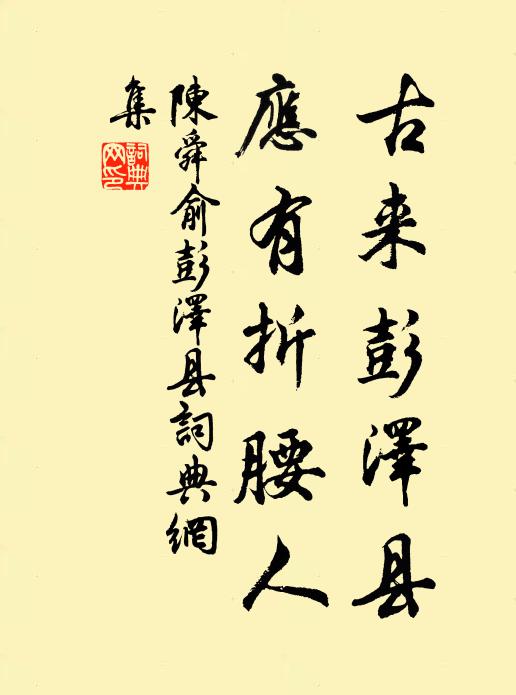 古来彭澤县
應有折腰人
陳舜俞彭澤县詞典網
集
詞典
网印